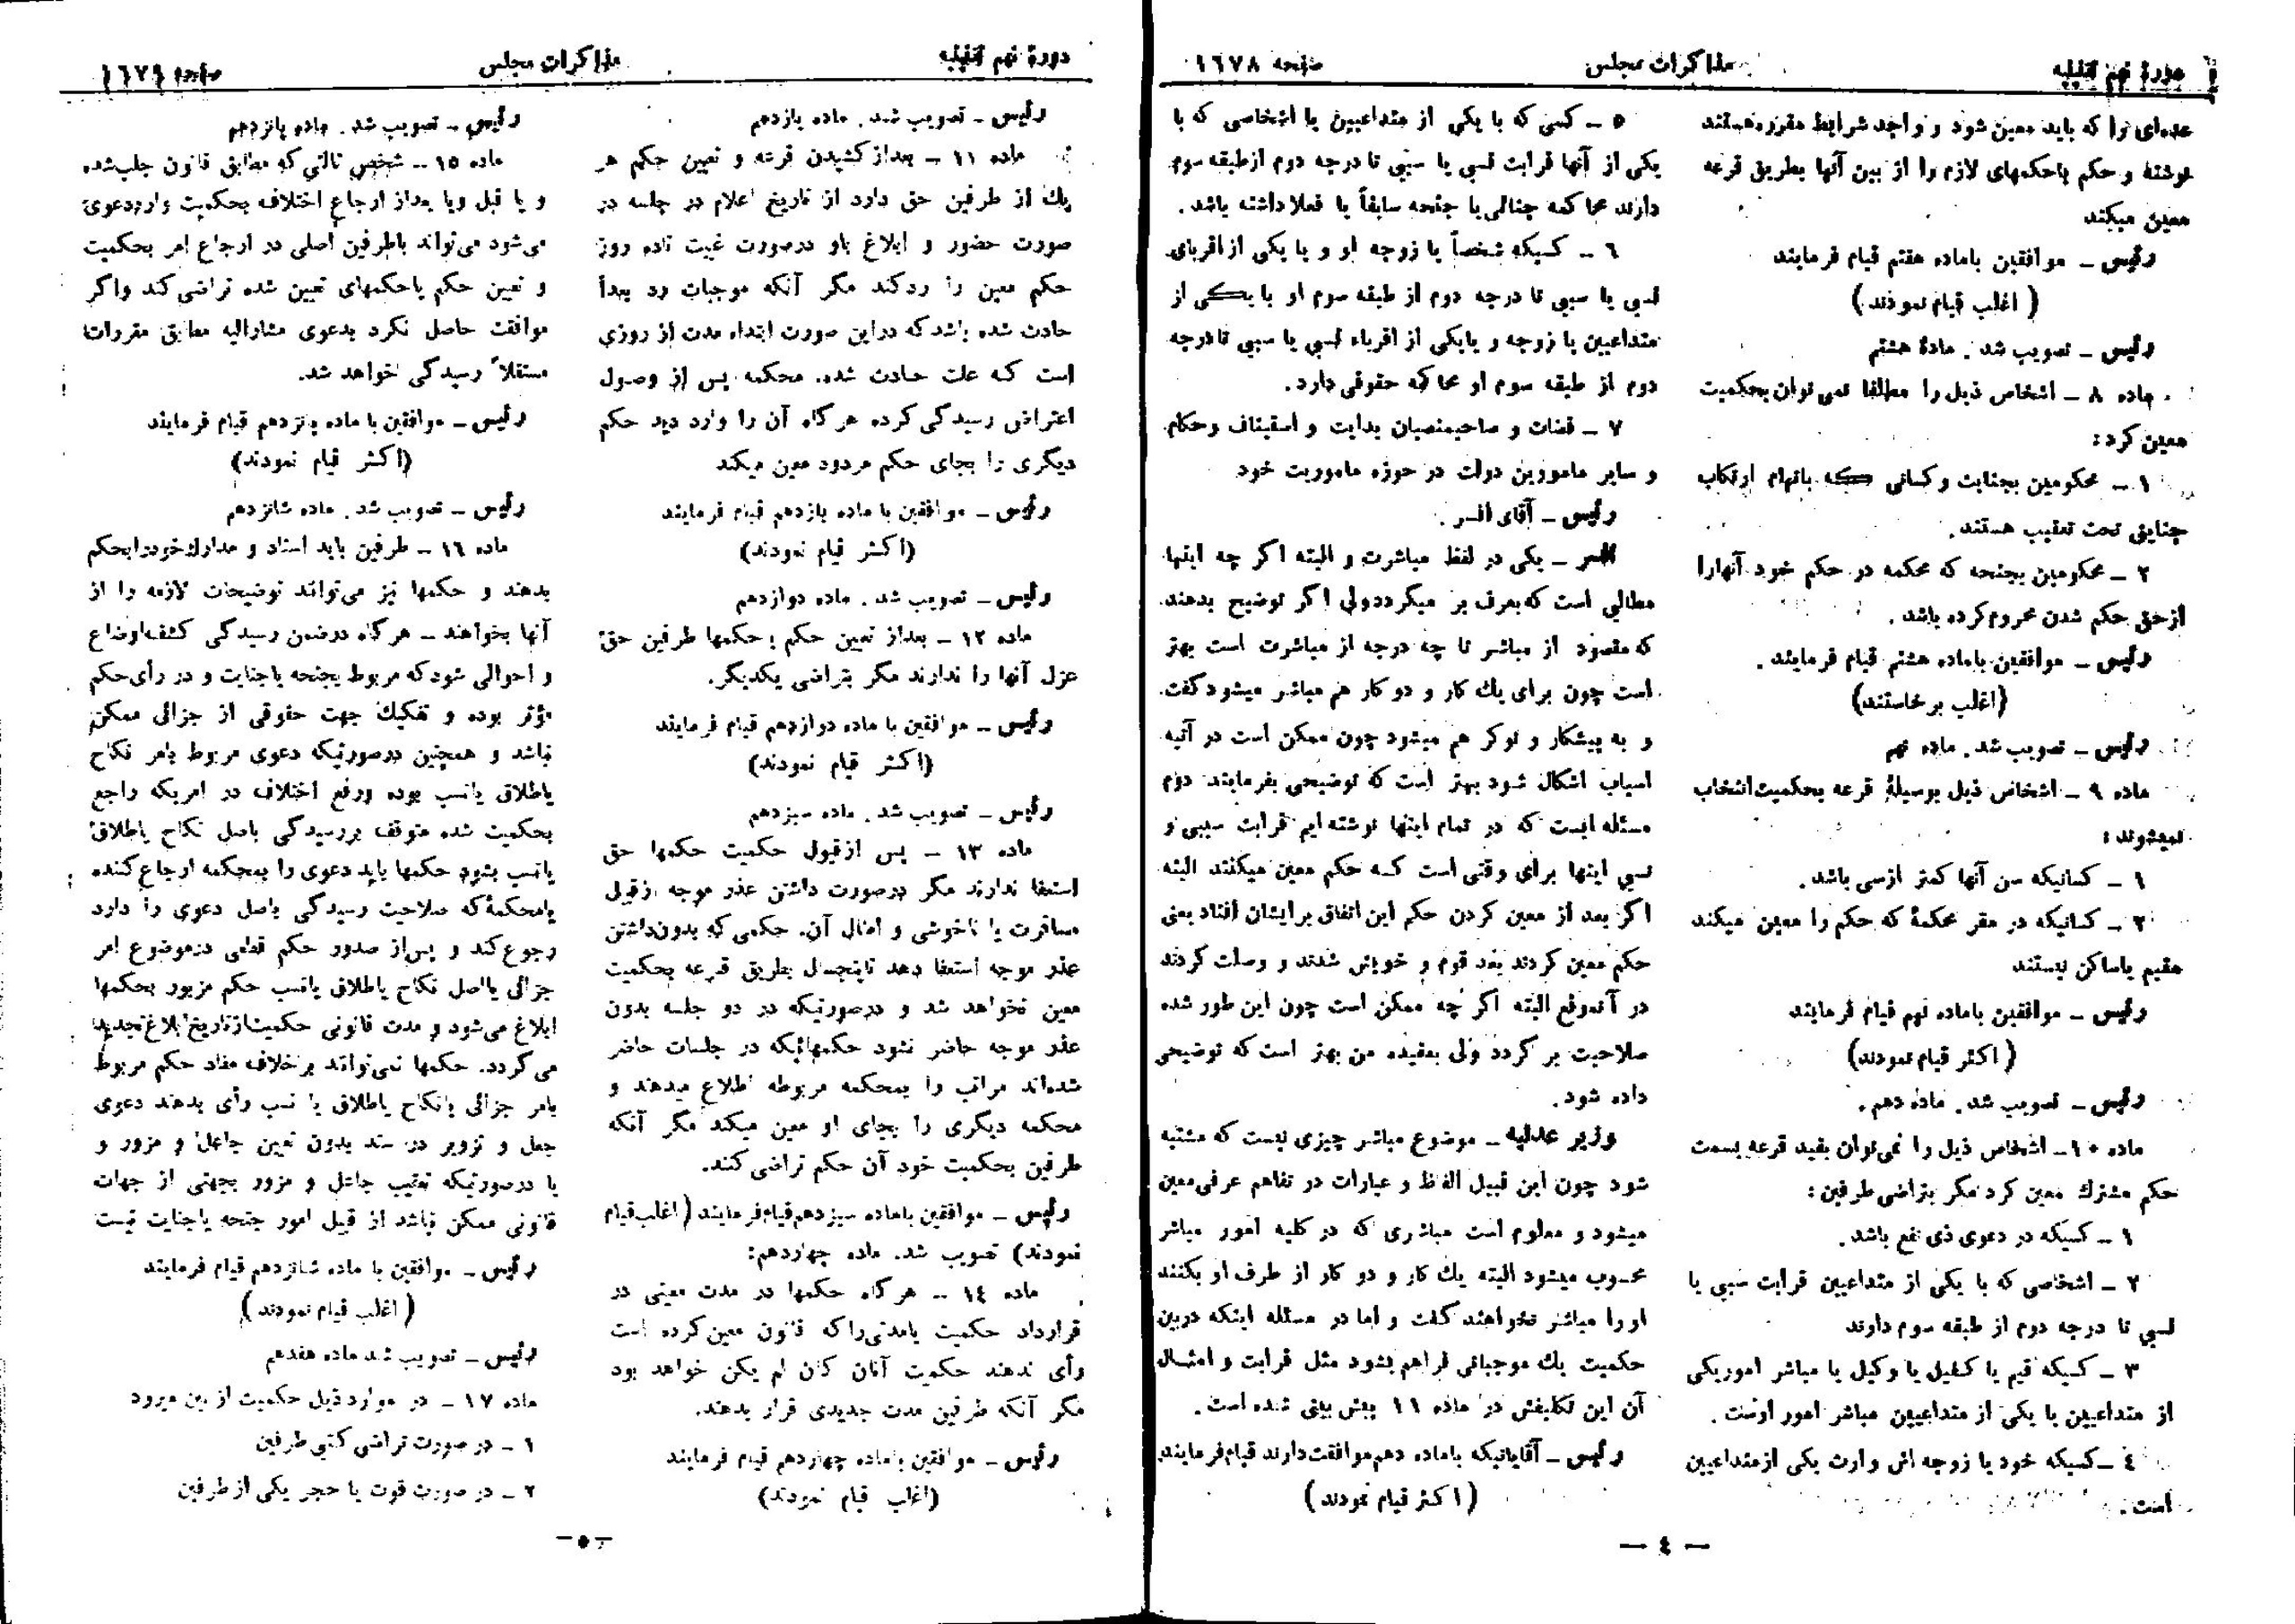 دورهٔ نهم تقنینیه
مذاکرات مجلس
صفحه ١٦٧٨
عده‌ای را که باید معین شود و واجد شرایط مقرره هستند
نوشته و حکم یا حکمهای لازم را از بین آنها بطریق قرعه
معین میکند
رئیس ـ موافقین با ماده هفتم قیام فرمایند
( اغلب قیام نمودند )
رئیس ـ تصویب شد . مادهٔ هشتم
ماده ٨ ـ اشخاص ذیل را مطلقا نمی توان بحکمیت
معین کرد :
١ ـ محکومین بجنایت و کسانی که باتهام ارتکاب
جنایتی تحت تعقیب هستند .
٢ ـ محکومین بجنحه که محکمه در حکم خود آنها را
از حق حکم شدن محروم کرده باشد .
رئیس ـ موافقین با ماده هشتم قیام فرمایند .
(اغلب برخاستند)
رئیس ـ تصویب شد . ماده نهم
ماده ٩ ـ اشخاص ذیل بوسیلهٔ قرعه بحکمیت انتخاب
نمیشوند :
١ ـ کسانیکه سن آنها کمتر از سی باشد .
٢ ـ کسانیکه در مقر محکمهٔ که حکم را معین میکند
مقیم یا ساکن نیستند
رئیس ـ موافقین با ماده نهم قیام فرمایند
( اکثر قیام نمودند )
رئیس ـ تصویب شد . ماده دهم .
ماده ١٠ ـ اشخاص ذیل را نمی‌توان بقید قرعه بسمت
حکم مشترك معین کرد مگر بتراضی طرفین :
١ ـ کسیکه در دعوی ذی نفع باشد .
٢ ـ اشخاصی که با یکی از متداعیین قرابت سببی یا
نسبی تا درجه دوم از طبقه سوم دارند
٣ ـ کسیکه قیم یا کفیل یا وکیل یا مباشر امور یکی
از متداعیین یا یکی از متداعیین مباشر امور اوست .
٤ ـ کسیکه خود یا زوجه اش وارث یکی از متداعیین
است .
٥ ـ کسی که با یکی از متداعیین یا اشخاصی که با
یکی از آنها قرابت نسبی یا سببی تا درجه دوم از طبقه سوم
دارند محاکمه جنائی یا جنحه سابقاً یا فعلا داشته باشد .
٦ ـ کسیکه شخصاً یا زوجه او و یا یکی از اقربای
نسبی یا سببی تا درجه دوم از طبقه سوم او با یکی از
متداعیین یا زوجه و یا یکی از اقرباء نسبی یا سببی تا درجه
دوم از طبقه سوم او محاکمه حقوقی دارد .
٧ ـ قضات و صاحبمنصبان بدایت و استیناف و حکام
و سایر مامورین دولت در حوزه ماموریت خود
رئیس ـ آقای افسر .
افسر ـ یکی در لفظ مباشرت و البته اگر چه اینها
مطالبی است که بعرف بر میگردد ولی اگر توضیح بدهند
که مقصود از مباشر تا چه درجه از مباشرت است بهتر
است چون برای یك کار و دو کار هم مباشر میشود گفت
و به پیشکار و نوکر هم میشود چون ممکن است در آتیه
اسباب اشکال شود بهتر است که توضیحی بفرمایند دوم
مسئله ایست که در تمام اینها نوشته ایم قرابت سببی و
نسبی اینها برای وقتی است که حکم معین میکنند البته
اگر بعد از معین کردن حکم این اتفاق برایشان افتاد یعنی
حکم معین کردند بعد قوم و خویش شدند و وصلت کردند
در آنموقع البته اگر چه ممکن است چون این طور شده
صلاحیت بر گردد ولی بعقیده من بهتر است که توضیحی
داده شود .
وزیر عدلیه ـ موضوع مباشر چیزی نیست که مشتبه
شود چون این قبیل الفاظ و عبارات در تفاهم عرفی معین
میشود و معلوم است مباشری که در کلیه امور مباشر
محسوب میشود البته یك کار و دو کار از طرف او بکنند
او را مباشر نخواهند گفت و اما در مسئله اینکه در بین
حکمیت یك موجباتی فراهم بشود مثل قرابت و امثال
آن این تکلیفش در ماده ١١ پیش بینی شده است .
رئیس ـ آقایانیکه با ماده دهم موافقت دارند قیام فرمایند
( اکثر قیام نمودند )
— ٤ —
دورهٔ نهم تقنینیه
مذاکرات مجلس
صفحه ١٦٧٩
رئیس ـ تصویب شد . ماده یازدهم
ماده ١١ ـ بعد از کشیدن قرعه و تعیین حکم هر
یك از طرفین حق دارد از تاریخ اعلام در جلسه در
صورت حضور و ابلاغ باو در صورت غیبت تا ده روز
حکم معین را رد کند مگر آنکه موجبات رد بعداً
حادث شده باشد که در این صورت ابتداء مدت از روزی
است که علت حادث شده . محکمه پس از وصول
اعتراض رسیدگی کرده هر گاه آن را وارد دید حکم
دیگری را بجای حکم مردود معین میکند
رئیس ـ موافقین با ماده یازدهم قیام فرمایند
(اکثر قیام نمودند)
رئیس ـ تصویب شد . ماده دوازدهم
ماده ١٢ ـ بعد از تعیین حکم یا حکمها طرفین حق
عزل آنها را ندارند مگر بتراضی یکدیگر.
رئیس ـ موافقین با ماده دوازدهم قیام فرمایند
(اکثر قیام نمودند)
رئیس ـ تصویب شد . ماده سیزدهم
ماده ١٣ ـ پس از قبول حکمیت حکمها حق
استعفا ندارند مگر در صورت داشتن عذر موجه از قبیل
مسافرت یا ناخوشی و امثال آن. حکمی که بدون داشتن
عذر موجه استعفا دهد تا پنجسال بطریق قرعه بحکمیت
معین نخواهد شد و در صورتیکه در دو جلسه بدون
عذر موجه حاضر نشود حکمهائیکه در جلسات حاضر
شده‌اند مراتب را بمحکمه مربوطه اطلاع میدهند و
محکمه دیگری را بجای او معین میکند مگر آنکه
طرفین بحکمیت خود آن حکم تراضی کنند.
رئیس ـ موافقین با ماده سیزدهم قیام فرمایند (اغلب قیام
نمودند) تصویب شد. ماده چهاردهم:
ماده ١٤ ـ هر گاه حکمها در مدت معینی در
قرارداد حکمیت یا مدتی را که قانون معین کرده است
رأی ندهند حکمیت آنان کان لم یکن خواهد بود
مگر آنکه طرفین مدت جدیدی قرار بدهند.
رئیس ـ موافقین با ماده چهاردهم قیام فرمایند
(اغلب قیام نمودند)
رئیس ـ تصویب شد . ماده پانزدهم
ماده ١٥ ـ شخص ثالثی که مطابق قانون جلب شده
و یا قبل و یا بعد از ارجاع اختلاف بحکمیت وارد دعوی
می‌شود می‌تواند با طرفین اصلی در ارجاع امر بحکمیت
و تعیین حکم یا حکمهای تعیین شده تراضی کند و اگر
موافقت حاصل نکرد بدعوی مشارالیه مطابق مقررات
مستقلاً رسیدگی خواهد شد.
رئیس ـ موافقین با ماده پانزدهم قیام فرمایند
(اکثر قیام نمودند)
رئیس ـ تصویب شد . ماده شانزدهم
ماده ١٦ ـ طرفین باید اسناد و مدارك خود را بحکم
بدهند و حکمها نیز می‌توانند توضیحات لازمه را از
آنها بخواهند ـ هر گاه در ضمن رسیدگی کشف اوضاع
و احوالی شود که مربوط بجنحه یا جنایت و در رأی حکم
مؤثر بوده و تفکیك جهت حقوقی از جزائی ممکن
نباشد و همچنین در صورتیکه دعوی مربوط بامر نکاح
یا طلاق یا نسب بوده و رفع اختلاف در امریکه راجع
بحکمیت شده متوقف بر رسیدگی باصل نکاح یا طلاق
یا نسب بشود حکمها باید دعوی را بمحکمه ارجاع کننده
یا محکمهٔ که صلاحیت رسیدگی باصل دعوی را دارد
رجوع کند و پس از صدور حکم قطعی در موضوع امر
جزائی یا اصل نکاح یا طلاق یا نسب حکم مزبور بحکمها
ابلاغ می‌شود و مدت قانونی حکمیت از تاریخ ابلاغ تجدید
می گردد. حکمها نمی‌توانند بر خلاف مفاد حکم مربوط
بامر جزائی یا نکاح یا طلاق یا نسب رأی بدهند دعوی
جعل و تزویر در سند بدون تعیین جاعل و مزور و
یا در صورتیکه تعقیب جاعل و مزور بجهتی از جهات
قانونی ممکن نباشد از قبیل امور جنحه یا جنایت نیست
رئیس ـ موافقین با ماده شانزدهم قیام فرمایند
( اغلب قیام نمودند )
رئیس ـ تصویب شد ماده هفدهم
ماده ١٧ ـ در موارد ذیل حکمیت از بین میرود
١ ـ در صورت تراضی کتبی طرفین
٢ ـ در صورت فوت یا حجر یکی از طرفین
— ٥ —